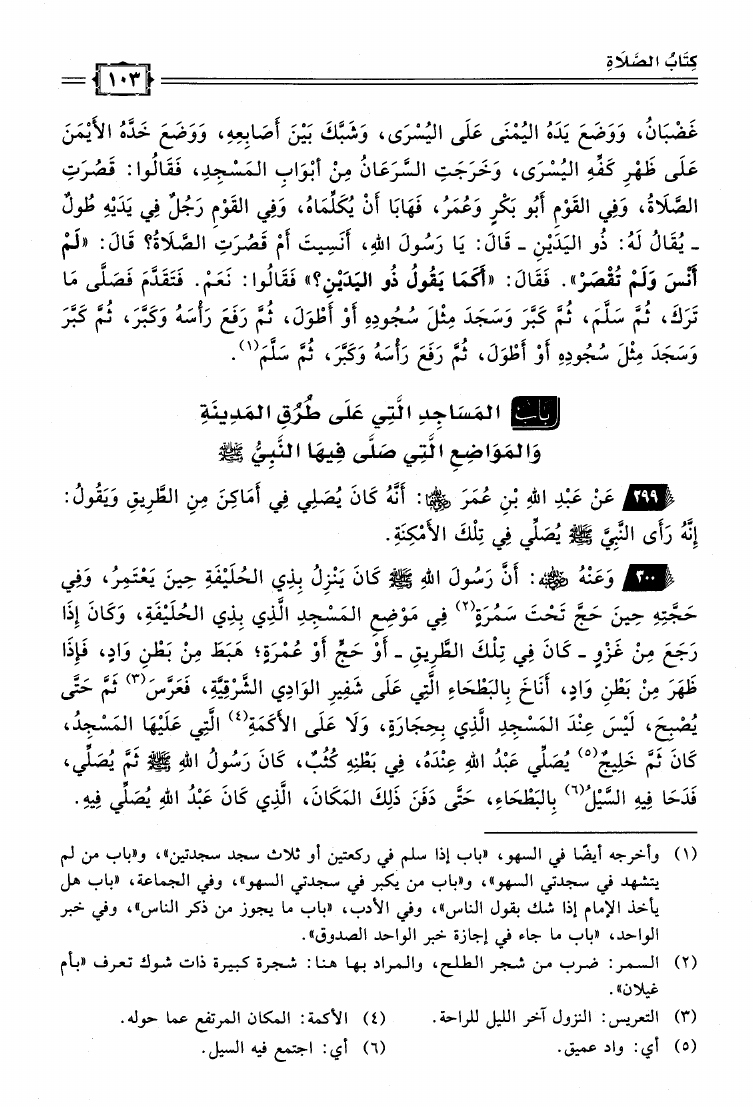 كِتَابُ الصَّلَاةِ
١٠٣
غَضْبَانُ، وَوَضَعَ يَدَهُ اليُمْنَى عَلَى اليُسْرَى، وَشَبَّكَ بَيْنَ أَصَابِعِهِ، وَوَضَعَ خَدَّهُ الأَيْمَنَ
عَلَى ظَهْرِ كَفِّهِ اليُسْرَى، وَخَرَجَتِ السَّرَعَانُ مِنْ أَبْوَابِ المَسْجِدِ، فَقَالُوا: قَصُرَتِ
الصَّلَاةُ، وَفِي القَوْمِ أَبُو بَكْرٍ وَعُمَرُ، فَهَابَا أَنْ يُكَلِّمَاهُ، وَفِي القَوْمِ رَجُلٌ فِي يَدَيْهِ طُولٌ
ـ يُقَالُ لَهُ: ذُو اليَدَيْنِ ـ قَالَ: يَا رَسُولَ اللهِ، أَنَسِيتَ أَمْ قَصُرَتِ الصَّلَاةُ؟ قَالَ: «لَمْ
أَنْسَ وَلَمْ تُقْصَرْ». فَقَالَ: «أَكَمَا يَقُولُ ذُو اليَدَيْنِ؟» فَقَالُوا: نَعَمْ. فَتَقَدَّمَ فَصَلَّى مَا
تَرَكَ، ثُمَّ سَلَّمَ، ثُمَّ كَبَّرَ وَسَجَدَ مِثْلَ سُجُودِهِ أَوْ أَطْوَلَ، ثُمَّ رَفَعَ رَأْسَهُ وَكَبَّرَ، ثُمَّ كَبَّرَ
وَسَجَدَ مِثْلَ سُجُودِهِ أَوْ أَطْوَلَ، ثُمَّ رَفَعَ رَأْسَهُ وَكَبَّرَ، ثُمَّ سَلَّمَ(١).
بَابُ المَسَاجِدِ الَّتِي عَلَى طُرُقِ المَدِينَةِ
وَالمَوَاضِعِ الَّتِي صَلَّى فِيهَا النَّبِيُّ ﷺ
٢٩٩ عَنْ عَبْدِ اللهِ بْنِ عُمَرَ رضي الله عنهما: أَنَّهُ كَانَ يُصَلِي فِي أَمَاكِنَ مِنِ الطَّرِيقِ وَيَقُولُ:
إِنَّهُ رَأَى النَّبِيَّ ﷺ يُصَلِّي فِي تِلْكَ الأَمْكِنَةِ.
٣٠٠ وَعَنْهُ رضي الله عنه: أَنَّ رَسُولَ اللهِ ﷺ كَانَ يَنْزِلُ بِذِي الحُلَيْفَةِ حِينَ يَعْتَمِرُ، وَفِي
حَجَّتِهِ حِينَ حَجَّ تَحْتَ سَمُرَةٍ(٢) فِي مَوْضِعِ المَسْجِدِ الَّذِي بِذِي الحُلَيْفَةِ، وَكَانَ إِذَا
رَجَعَ مِنْ غَزْوٍ ـ كَانَ فِي تِلْكَ الطَّرِيقِ ـ أَوْ حَجٍّ أَوْ عُمْرَةٍ؛ هَبَطَ مِنْ بَطْنِ وَادٍ، فَإِذَا
ظَهَرَ مِنْ بَطْنِ وَادٍ، أَنَاخَ بِالبَطْحَاءِ الَّتِي عَلَى شَفِيرِ الوَادِي الشَّرْقِيَّةِ، فَعَرَّسَ(٣) ثَمَّ حَتَّى
يُصْبِحَ، لَيْسَ عِنْدَ المَسْجِدِ الَّذِي بِحِجَارَةٍ، وَلَا عَلَى الأَكَمَةِ(٤) الَّتِي عَلَيْهَا المَسْجِدُ،
كَانَ ثَمَّ خَلِيجٌ(٥) يُصَلِّي عَبْدُ اللهِ عِنْدَهُ، فِي بَطْنِهِ كُثُبٌ، كَانَ رَسُولُ اللهِ ﷺ ثَمَّ يُصَلِّي،
فَدَحَا فِيهِ السَّيْلُ(٦) بِالبَطْحَاءِ، حَتَّى دَفَنَ ذَلِكَ المَكَانَ، الَّذِي كَانَ عَبْدُ اللهِ يُصَلِّي فِيهِ.
(١) وأخرجه أيضًا في السهو، «باب إذا سلم في ركعتين أو ثلاث سجد سجدتين»، و«باب من لم
يتشهد في سجدتي السهو»، و«باب من يكبر في سجدتي السهو»، وفي الجماعة، «باب هل
يأخذ الإمام إذا شك بقول الناس»، وفي الأدب، «باب ما يجوز من ذكر الناس»، وفي خبر
الواحد، «باب ما جاء في إجازة خبر الواحد الصدوق».
(٢) السمر: ضرب من شجر الطلح، والمراد بها هنا: شجرة كبيرة ذات شوك تعرف «بأم
غيلان».
(٣) التعريس: النزول آخر الليل للراحة. (٤) الأكمة: المكان المرتفع عما حوله.
(٥) أي: واد عميق. (٦) أي: اجتمع فيه السيل.